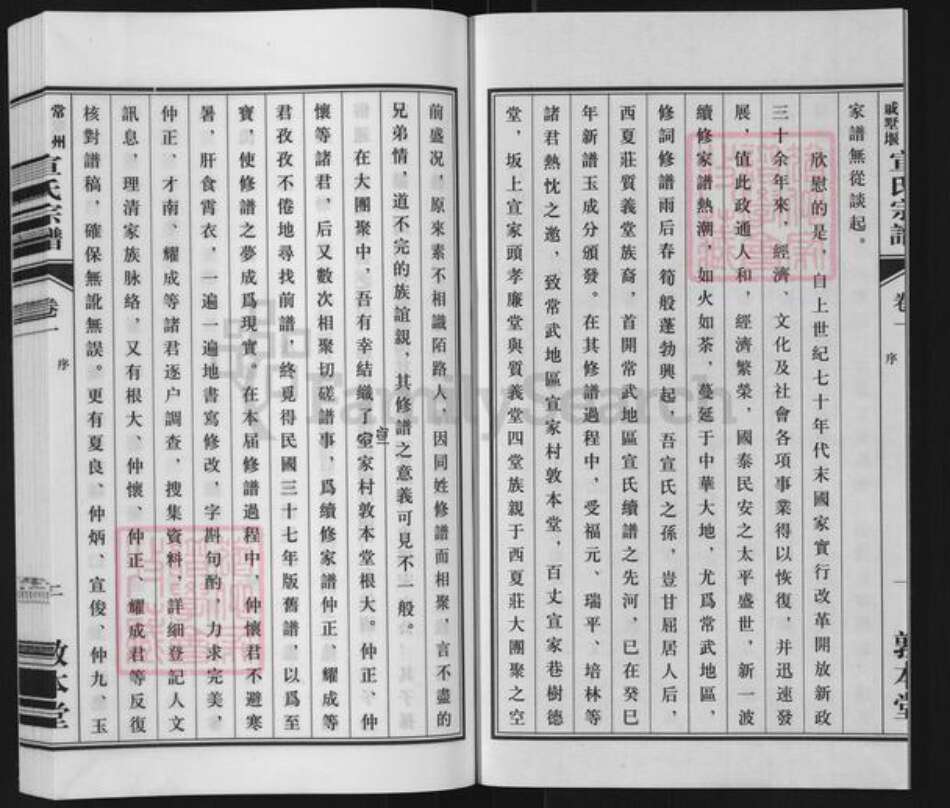 戚墅堰
宣氏宗譜
卷一
序
一
敦本堂
家譜無從談起。
欣慰的是，自上世紀七十年代末國家實行改革開放新政
三十余年來，經濟、文化及社會各項事業得以恢復，并迅速發
展，值此政通人和，經濟繁榮，國泰民安之太平盛世，新一波
續修家譜熱潮，如火如荼，蔓延于中華大地，尤爲常武地區，
修詞修譜雨后春筍般蓬勃興起，吾宣氏之孫，豈甘屈居人后，
西夏莊質義堂族裔，首開常武地區宣氏續譜之先河，已在癸巳
年新譜玉成分頒發。在其修譜過程中，受福元、瑞平、培林等
諸君熱忱之邀，致常武地區宣家村敦本堂，百丈宣家巷樹德
堂，坂上宣家頭孝廉堂與質義堂四堂族親于西夏莊大團聚之空
前盛况，原來素不相識陌路人，因同姓修譜而相聚，言不盡的
兄弟情，道不完的族誼親，其修譜之意義可見不一般。
在大團聚中，吾有幸結織了宣家村敦本堂根大。仲正、仲
懷等諸君，后又數次相聚切磋譜事，爲續修家譜仲正、耀成等
君孜孜不倦地尋找前譜，終覓得民國三十七年版舊譜，以爲至
寶，使修譜之夢成爲現實。在本届修譜過程中，仲懷君不避寒
暑，肝食霄衣，一遍一遍地書寫修改，字斟句酌，力求完美，
仲正，才南、耀成等諸君逐户調查，搜集資料，詳細登記人文
訊息，理清家族脉絡，又有根大、仲懷、仲正、耀成君等反復
核對譜稿，確保無訛無誤。更有夏良、仲炳、宣俊、仲九、玉
常州
宣氏宗譜
卷一
序
二
敦本堂
FamilySearch